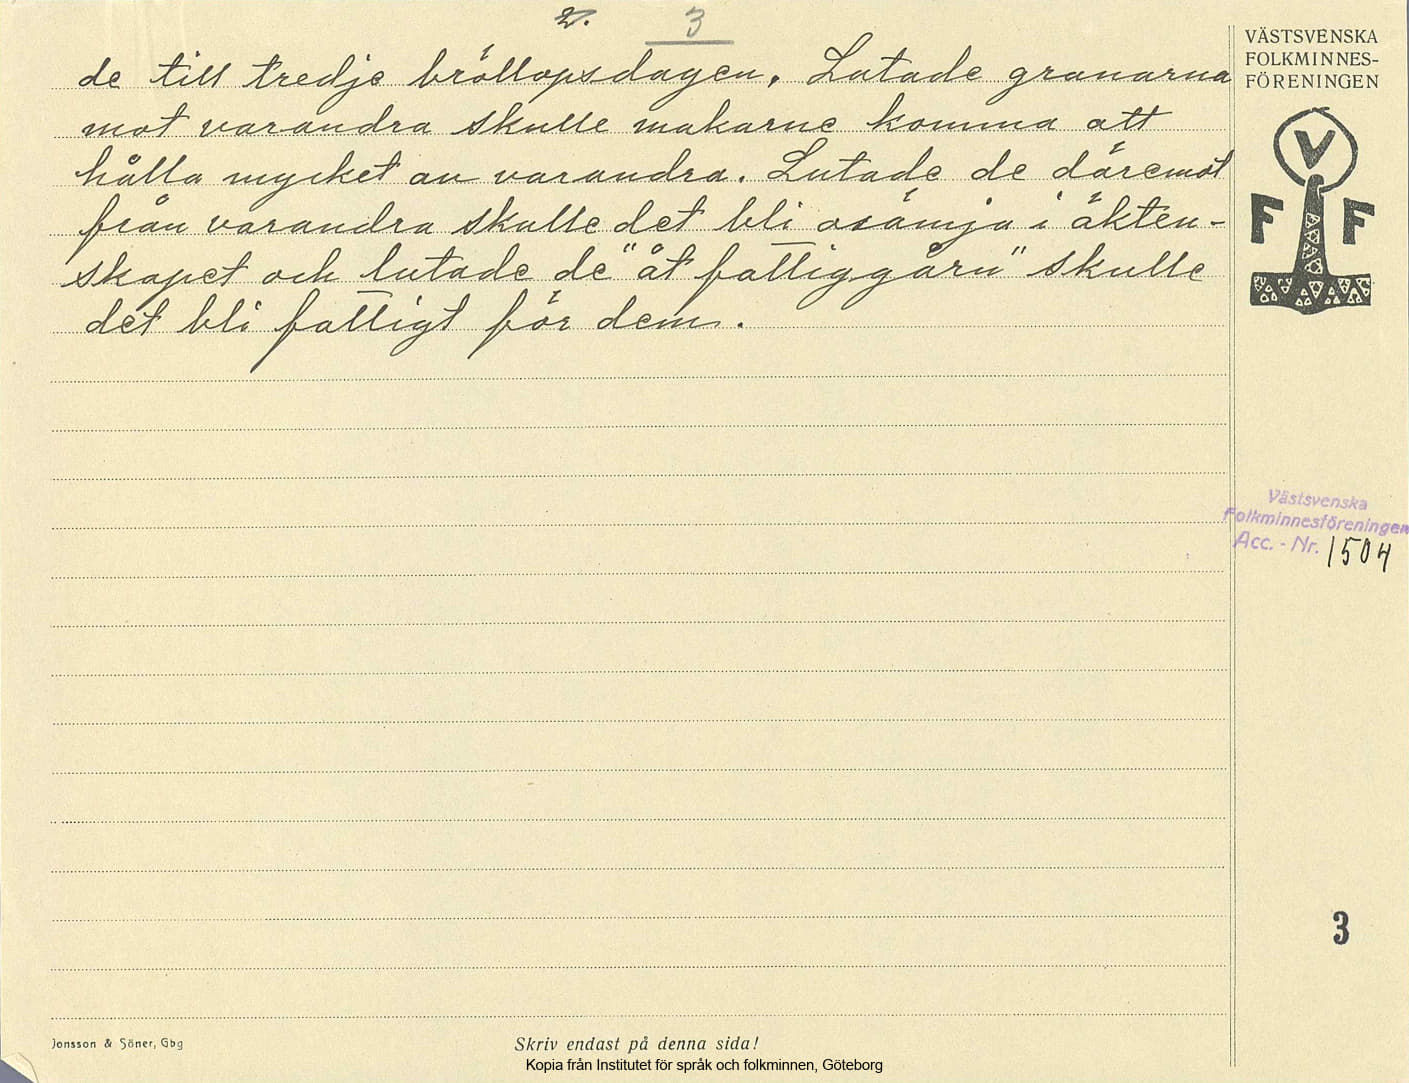 2. 3
de till tredje bröllopsdagen. Lutade granarna
mot varandra skulle makarne komma att
hålla mycket av varandra. Lutade de däremot
från varandra skulle det bli osämja i äkten-
skapet och lutade de "åt fattiggårn" skulle
det bli fattigt för dem.
VÄSTSVENSKA
FOLKMINNES-
FÖRENINGEN
V
F F
Västsvenska
Folkminnesföreningen
Acc. - Nr. 1504
3
Jonsson & Söner, Gbg
Skriv endast på denna sida!
Kopia från Institutet för språk och folkminnen, Göteborg